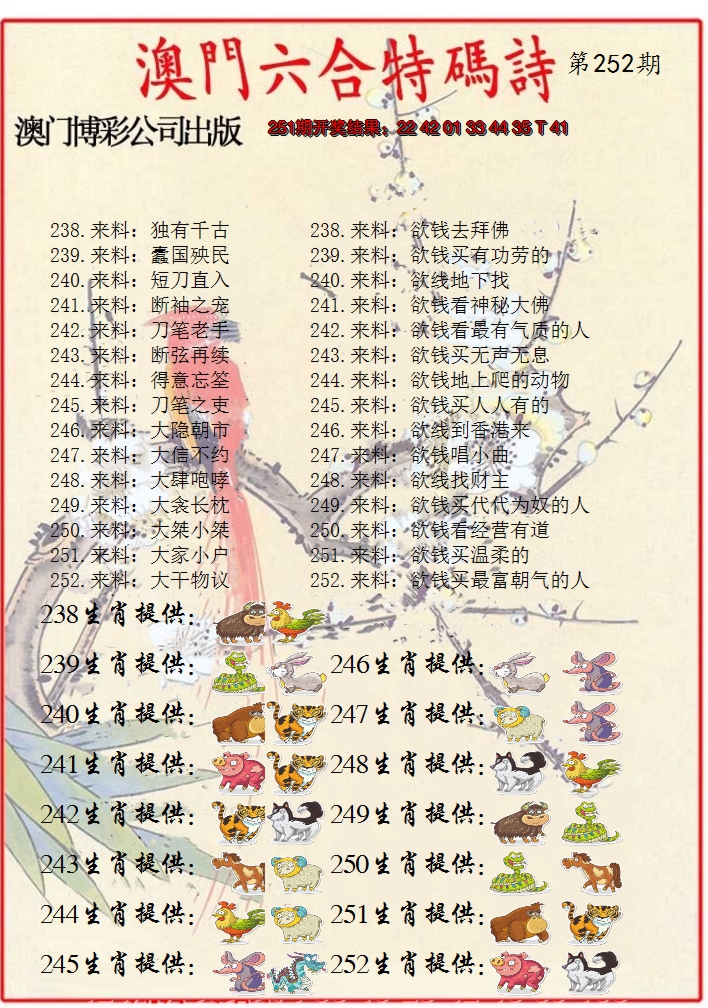 澳門六合特碼詩 第252期
澳门博彩公司出版 251期开奖结果：22 42 01 33 44 35 T 41
238.来料：独有千古 238.来料：欲钱去拜佛
239.来料：蠹国殃民 239.来料：欲钱买有功劳的
240.来料：短刀直入 240.来料：欲线地下找
241.来料：断袖之宠 241.来料：欲钱看神秘大佛
242.来料：刀笔老手 242.来料：欲钱看最有气质的人
243.来料：断弦再续 243.来料：欲钱买无声无息
244.来料：得意忘筌 244.来料：欲钱地上爬的动物
245.来料：刀笔之吏 245.来料：欲钱买人人有的
246.来料：大隐朝市 246.来料：欲线到香港来
247.来料：大信不约 247.来料：欲钱唱小曲
248.来料：大肆咆哮 248.来料：欲线找财主
249.来料：大衾长枕 249.来料：欲钱买代代为奴的人
250.来料：大桀小桀 250.来料：欲钱看经营有道
251.来料：大家小户 251.来料：欲钱买温柔的
252.来料：大干物议 252.来料：欲钱买最富朝气的人
238生肖提供：
239生肖提供： 246生肖提供：
240生肖提供： 247生肖提供：
241生肖提供： 248生肖提供：
242生肖提供： 249生肖提供：
243生肖提供： 250生肖提供：
244生肖提供： 251生肖提供：
245生肖提供： 252生肖提供：